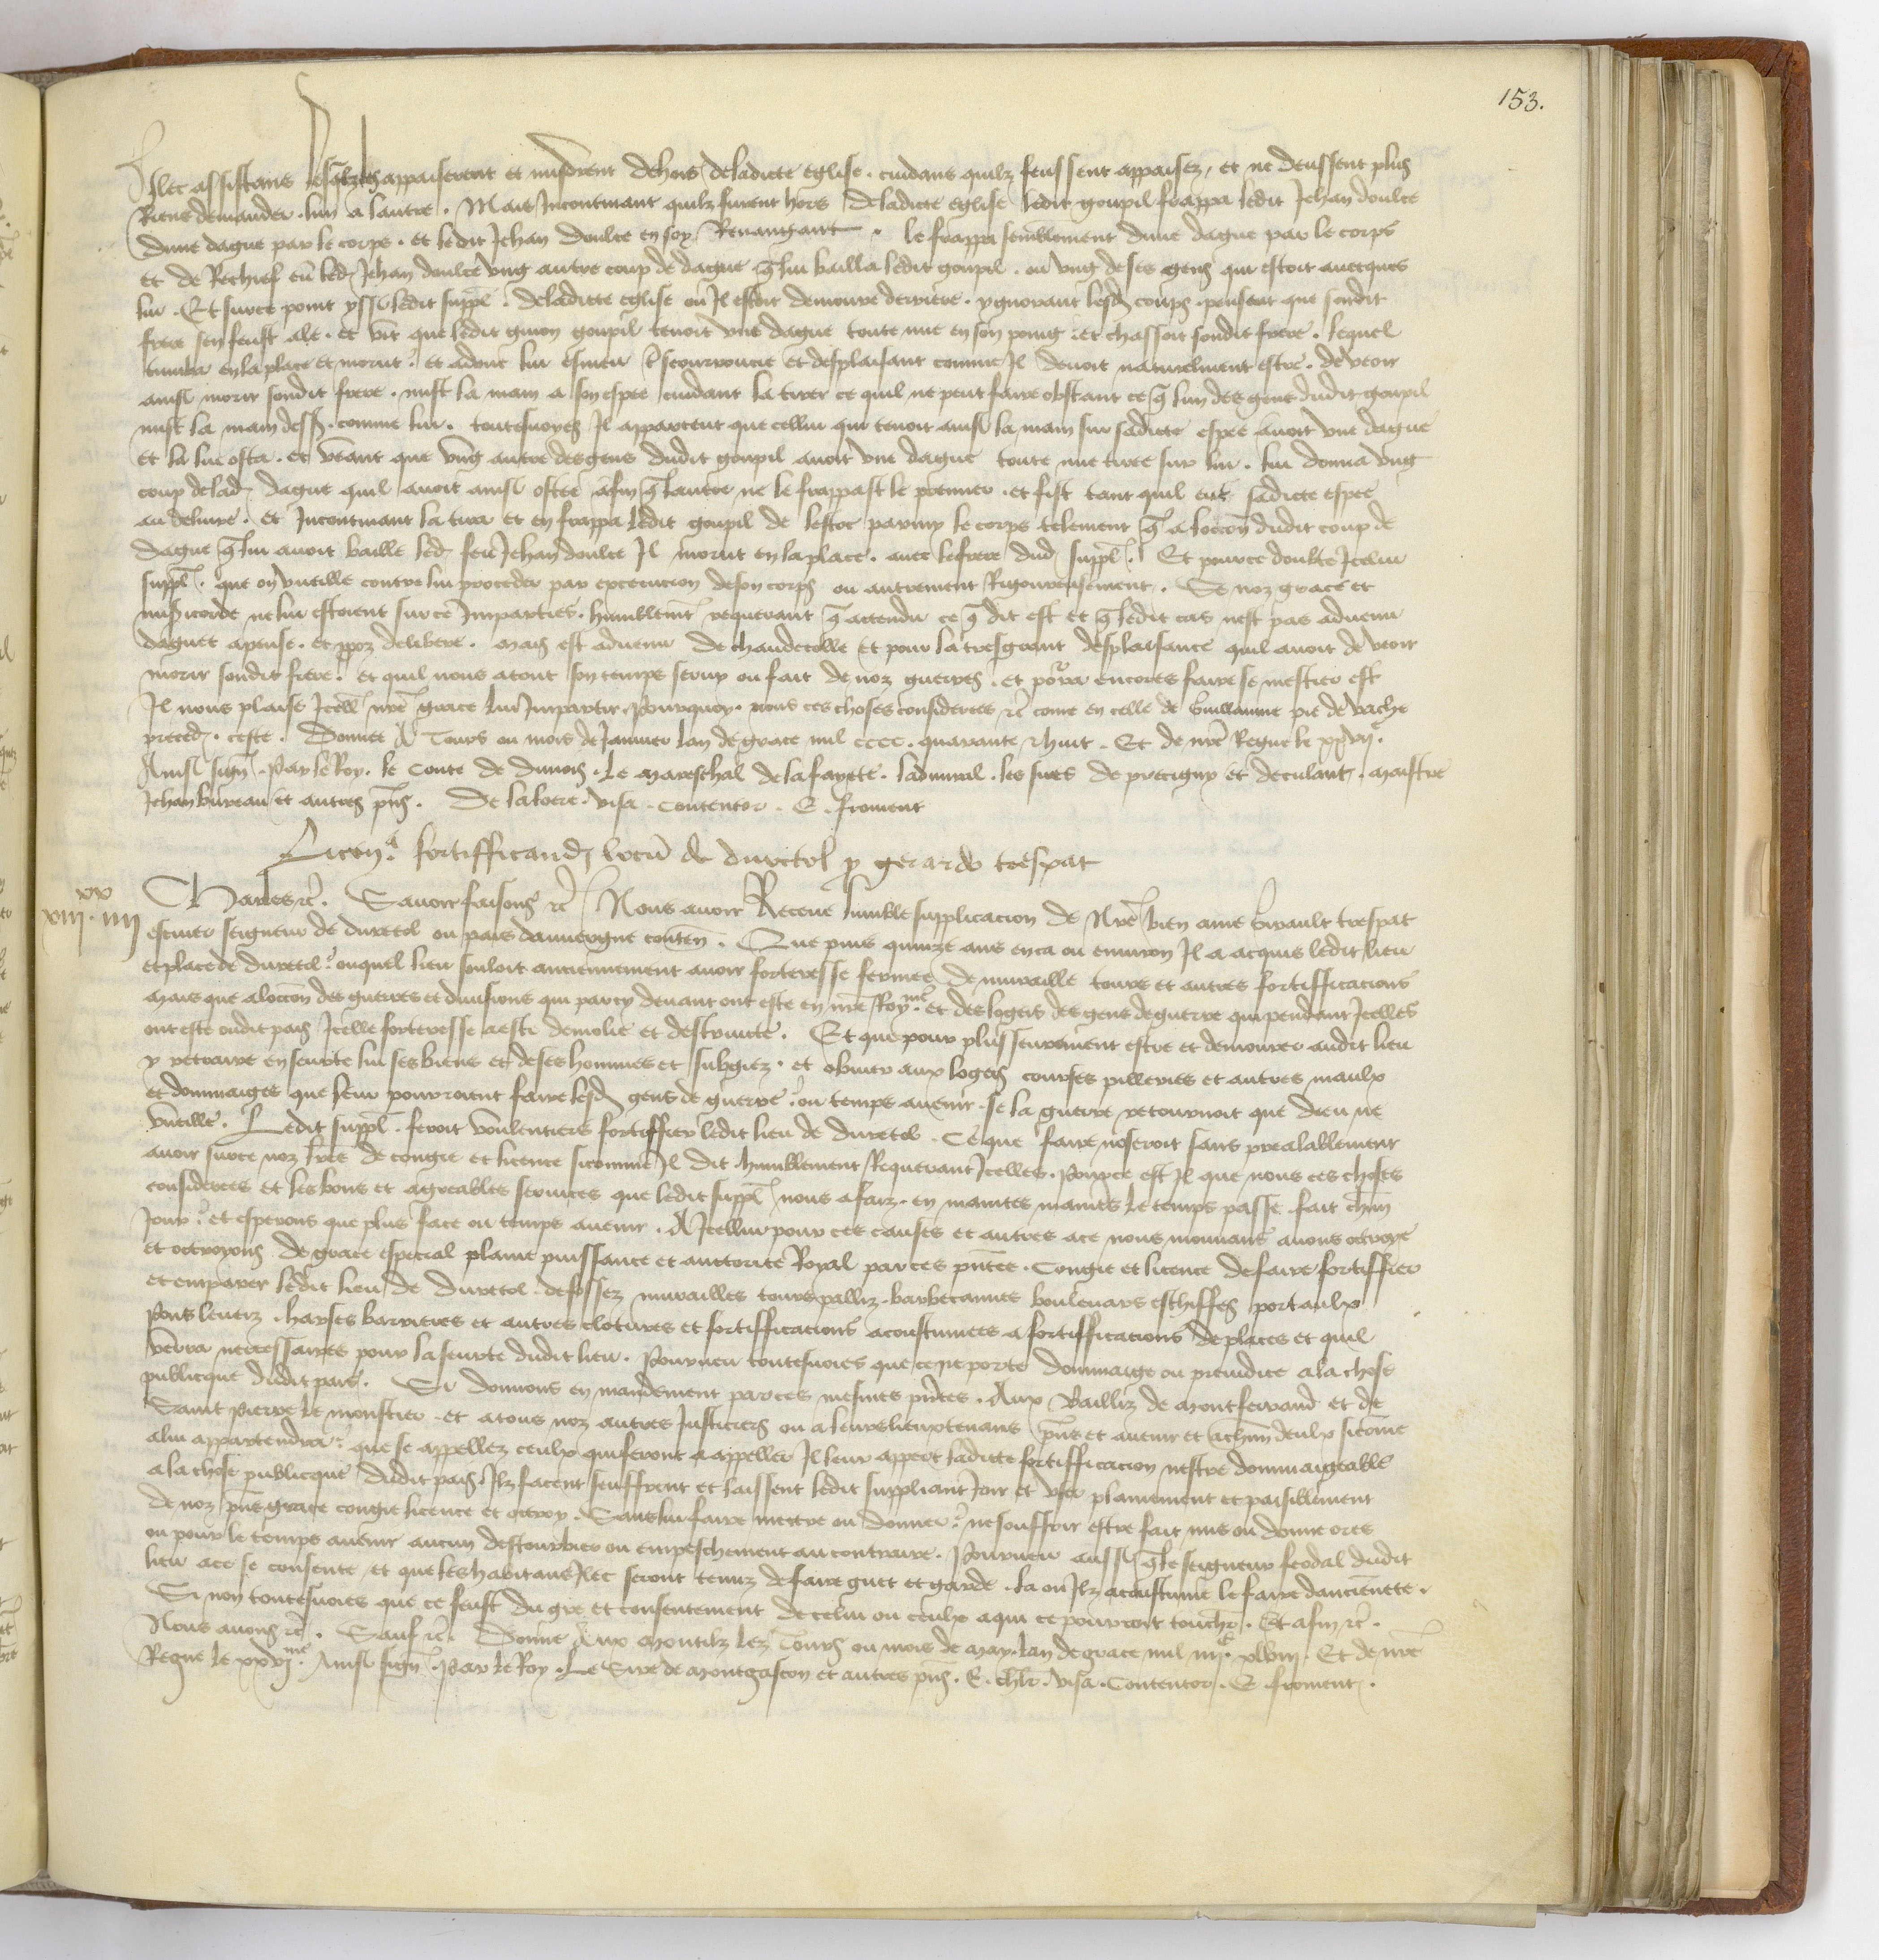 153.
Illec assistans les appaiserent et misdrent dehors de ladicte eglise. cuidans quilz feussent appaisez, et ne deussent plus
Riens demander lun a lautre. Mais Incontinant quilz furent hors de ladicte eglise ledit goupil frappa ledit Jehan doulce
dune dague par le corps. et ledit Jehan doulce en soy Revangant. le frappa semblement dune dague par le corps
et de Rechief eut led Jehan doulce ung autre coup de dague q̃ lui bailla ledit goupil. ou ung de ses gens qui estoit avecques
lui. Et surce point yssi ledit suppl. de ladicte eglise ou Il estoit demoure derriere. ygnorant lesd coups. pensent que sondit
frere sen feust ale. et vit que ledit guion goupil tenoit une dague toute nue en son poing et chassoit sondit frere. lequel
tumba en la place et morut. et adonc lui esmeu et courroucie et desplaisant comme Il devoit naturelment estre. de veoir
ainsi morir sondit frere. mist la main a son espee cuidant la tirer ce quil ne peut faire obstant ce q̃ lun des gens dudit goupil
mist la main dess. comme lui. toutesvoyes Il apparceut que cellui qui tenoit ainsi la main sur sadicte espee avoit une dague
et la lui osta. et veant que ung autre des gens dudit goupil avoit une dague toute nue tiree sur lui. lui donna ung
coup de lad dague quil avoit ainsi ostee afin q̃ lautre ne le frappast le premier. et fist tant quil eut sadicte espee
au delivre. et Incontinant la tira et en frappa ledit goupil de lestoc parmy le corps telement q̃ a loccon dudit coup de
dague q̃ lui avoit baille led feu Jehan doulce Il morut en la place. avec le frere dud suppl. Et pource doubte Icelui
suppl. que on vueille contre lui proceder par execucion de son corps ou autrement Rigoureusement. Se noz grace et
misicorde ne lui estoient surce Imparties. humblemt requerant q̃ attendu ce q̃ dit est et q̃ ledit cas nest pas advenu
daguet apense. et ppoz delibere. mais est advenu de chaudecolle et pour la tresgrant desplaisance quil avoit de veoir
morir sondit frere. et quil nous a tout son temps servy ou fait de noz guerres. et porra encores faire se mestier est
Il nous plaise Icell nre grace lui Impartir. Pourquoy. nous ces choses considerees etc come en celle de Guillaume pie de vache
preced. ceste. Donnee A Tours ou mois de Janvier lan de grace mil cccc. quarante et huit. Et de nre Regne le xxvije
Ainsi sign. Par le Roy. le Conte de dunois. Le mareschal de la fayete. ladmiral. les sires de precigny et de culant. maistre
Jehan bureau et autres pns. De la loere. Visa. Contentor. E. froment
Licen.a fortifficand locu de durctol p gerardo trespat
xv
xiii. iiii
Charles etc. Savoir faisons etc Nous avoir Receue lumble supplicacion de Nre bien ame Girault trespat
escuier seigneur de duretol ou pais dauvergne conten. Que puis quinze ans enca ou environ Il a acquis ledit lieu
et place de duretol. ouquel lieu souloit anciennement avoir forteresse fermee de muraille tours et autres fortifficacions
mais que a loccon des guerres et divisions qui parcy devant ont este en nre Royme. et des logeis des gens de guerre qui pendant Icelles
ont este oudit pais Icelle forteresse a este demolie et destruicte. Et que pour plus seurement estre et demourer audit lieu
y retraire en seurte lui ses biens et de ses hommes et subgiez. et obvier aux logeis courses pilleries et autres maulx
et dommaiges que leur pourroient faire lesd gens de guerre. ou temps avenir. se la guerre retournoit que dieu ne
vueille. Ledit suppl. feroit voulentiers fortiffier ledit lieu de duretol. Ce que faire noseroit sans prealablement
avoir surce noz lres de congie et licence sicomme Il dit humblement Requerant Icelles. Pource est Il que nous ces choses
considerees et les bons et agreables services que ledit suppl nous a faiz. en maintes manies le temps passe. fait chun
Jour. et esperons que plus face ou temps avenir. A Icellui pour ces causes et autres ace nous mouvans avons octroye
et octroyons de grace especial plaine puissance et auctorite Royal par ces pntes. Congie et licence de faire fortiffier
et emparer ledit lieu de duretol. de fossez murailles tours palliz. barbecannes boulevars eschiffes portaulx
Pons leveiz. harses barrieres et autres clotures et fortifficacions acoustumees a fortifficacions de places et quil
verra necessaires pour la seurte dudit lieu. Pourveu toutesvoies que ce ne porte dommaige ou preiudice a la chose
publicque dudit pais. Si donnons en mandement par ces mesmes pntes. Aux Bailliz de montferrand et de
Saint Pierre le monstier. et a tous noz autres Justiciers ou a leurs lieuxtenans pns et avenir et a chun deulx sicome
a lui appartendra. que se appellez ceulx qui seront a appeller Il leur appert ladicte fortifficacion nestre dommaigeable
a la chose publicque dudit pais. Ilz facent seuffrent et laissent ledit suppliant Joir et user plainement et paisiblement
de noz pns grace congie licence et octroy. Sans lui faire mettre ou donner. ne souffrir estre fait mis ou donne ores
ou pour le temps avenir aucun destourbier ou empeschement au contraire. Pourveu aussi q̃ le seigneur feodal dudit
lieu ace se consente et que les habitans Illec seront tenuz de faire guet et garde. la ou Ilz acoustume le faire danciennete.
Si non toutesvoies que ce feust du gre et consentement de celui ou ceulx aqui ce pourroit toucher. Et afin etc.
Nous avons etc. Sauf etc. Donne Aux Montilz lez Tours ou mois de May. lan de grace mil iiiic. xlviii. Et de nre
Regne le xxvjme. Ainsi sign. Par le Roy. Le Sire de Montgascon et autres pns. E. chlr. Visa. Contentor. E. froment.